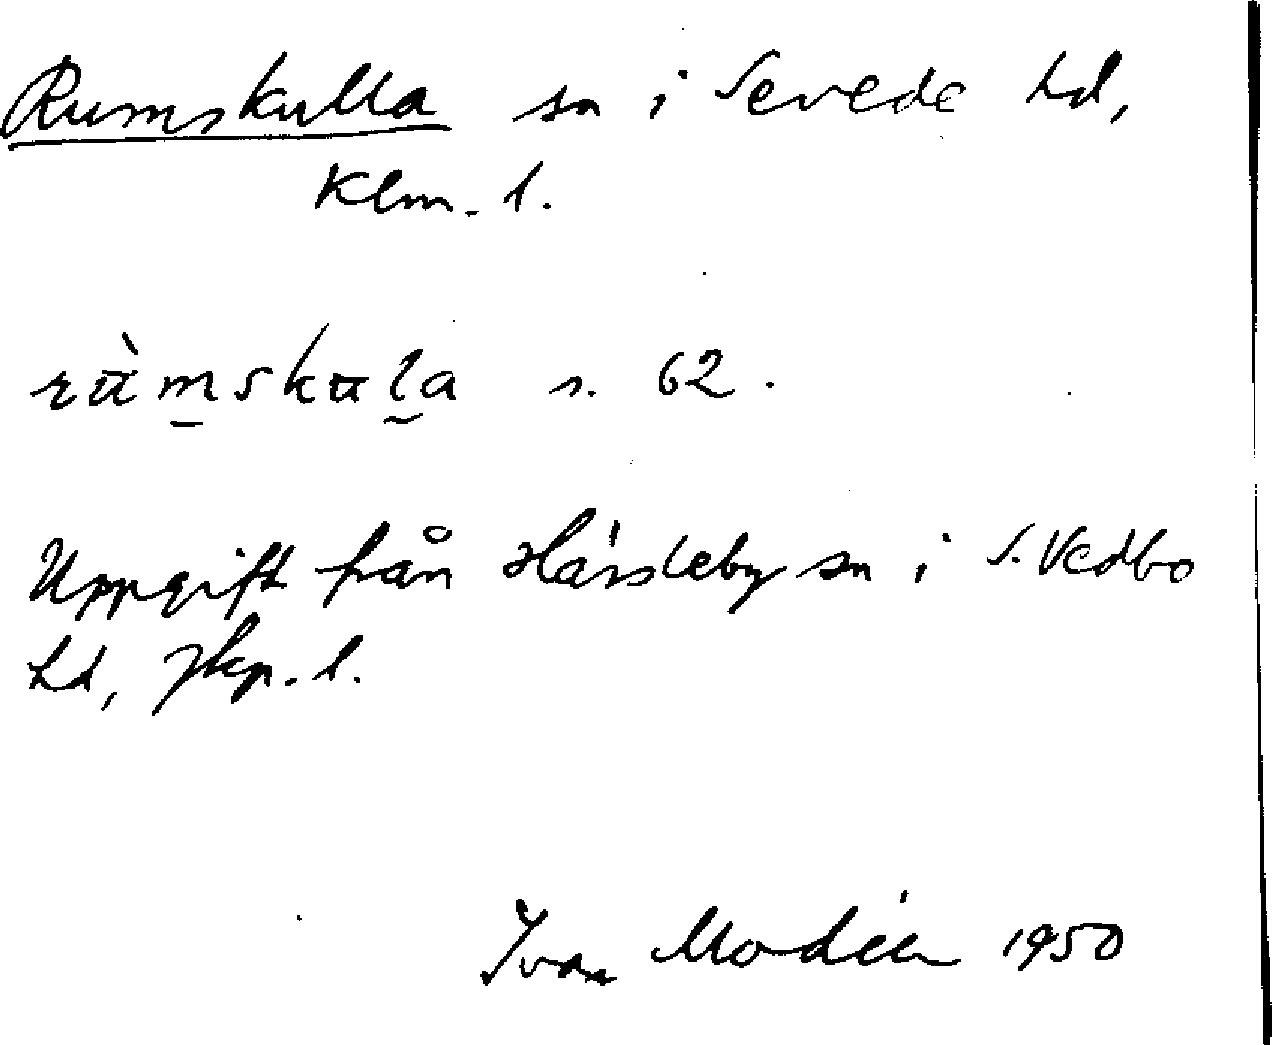 Rumskulla sn i Sevede hd,
Klm. l.
rùm̱skula̮ s. 62.
Uppgift från Hässleby sn i S. Vedbo
hd, Jkp. l.
Ivan Modéer 1950